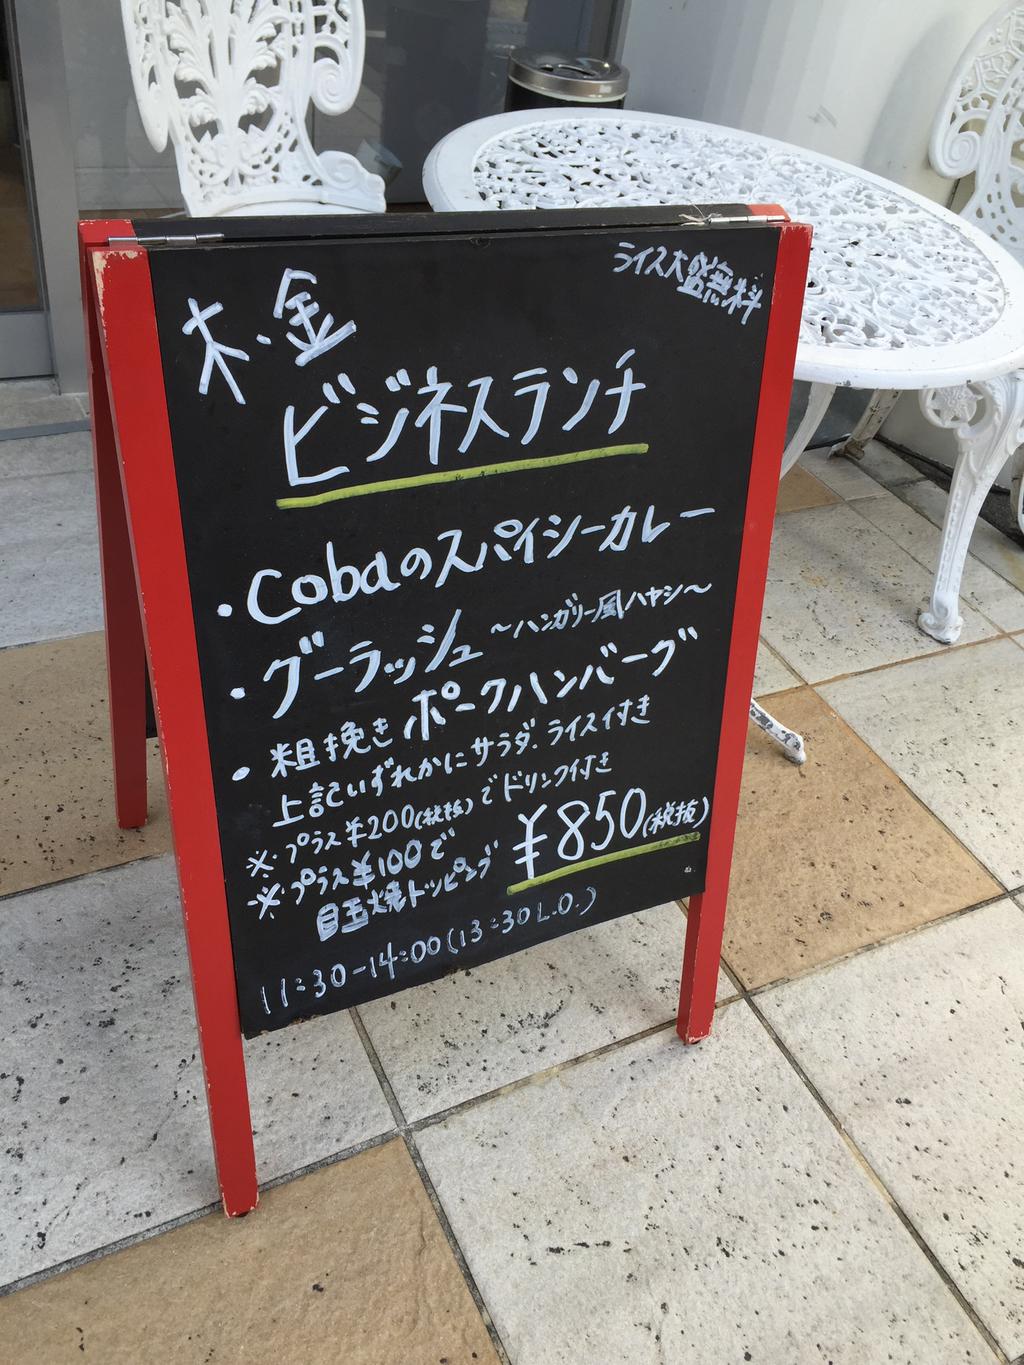 ライス大盛無料
木・金
ビジネスランチ
・Cobaのスパイシーカレー
・グーラッシュ ～ハンガリー風ハヤシ～
・粗挽きポークハンバーグ
上記いずれかにサラダ、ライス付き
※プラス¥200(税抜)でドリンク付き
※プラス¥100で
目玉焼トッピング
¥850(税抜)
11:30-14:00(13:30L.O.)